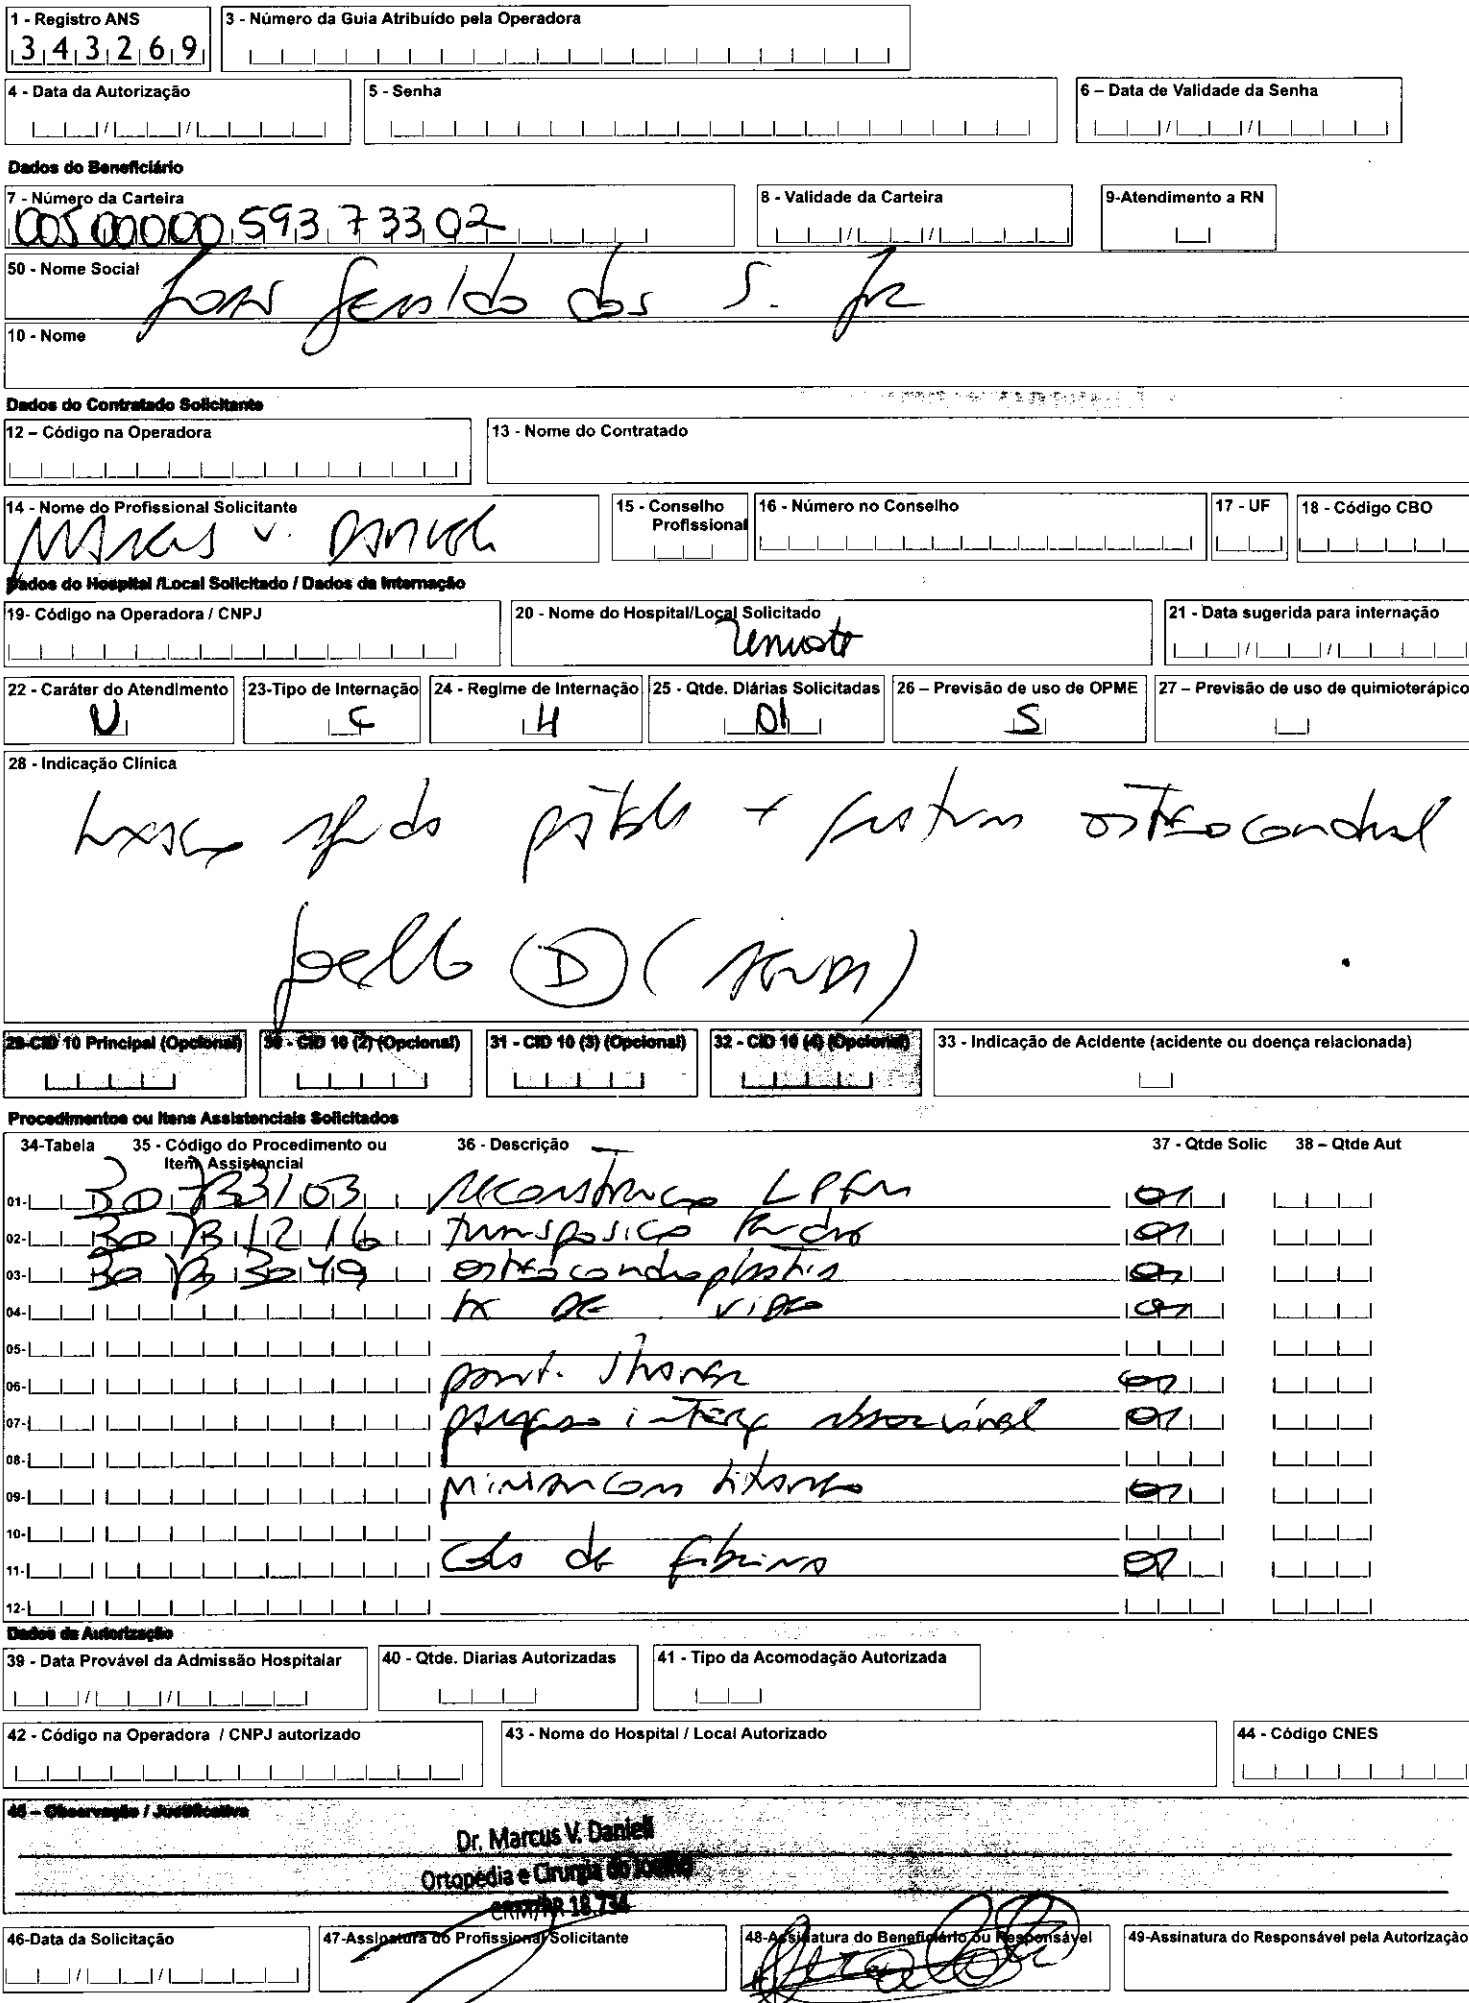 1 - Registro ANS
3 4 3 2 6 9
3 - Número da Guia Atribuído pela Operadora
4 - Data da Autorização
5 - Senha
6 – Data de Validade da Senha
Dados do Beneficiário
7 - Número da Carteira
00500000 593 73302
8 - Validade da Carteira
9-Atendimento a RN
50 - Nome Social
Geraldo dos S. Jr
10 - Nome
Dados do Contratado Solicitante
12 – Código na Operadora
13 - Nome do Contratado
14 - Nome do Profissional Solicitante
Marcus V. Danieli
15 - Conselho Profissional
16 - Número no Conselho
17 - UF
18 - Código CBO
Dados do Hospital /Local Solicitado / Dados da Internação
19- Código na Operadora / CNPJ
20 - Nome do Hospital/Local Solicitado
21 - Data sugerida para internação
22 - Caráter do Atendimento
U
23-Tipo de Internação
C
24 - Regime de Internação
H
25 - Qtde. Diárias Solicitadas
01
26 – Previsão de uso de OPME
S
27 – Previsão de uso de quimioterápico
28 - Indicação Clínica
patela + fratura osteocondral
joelho (D) (aguda)
29-CID 10 Principal (Opcional)
30 - CID 10 (2) (Opcional)
31 - CID 10 (3) (Opcional)
32 - CID 10 (4) (Opcional)
33 - Indicação de Acidente (acidente ou doença relacionada)
Procedimentos ou Itens Assistenciais Solicitados
34-Tabela
35 - Código do Procedimento ou Item Assistencial
36 - Descrição
37 - Qtde Solic
38 – Qtde Aut
01- 30733103 reconstrução LPFM 01
02- transposição 01
03- 30733049 osteocondroplastia 01
04- tx de video 01
05-
06- pont. shaver 01
07- absorvível 01
08-
09- miniancora titanio 01
10-
11- cola de fibrina 01
12-
Dados da Autorização
39 - Data Provável da Admissão Hospitalar
40 - Qtde. Diarias Autorizadas
41 - Tipo da Acomodação Autorizada
42 - Código na Operadora / CNPJ autorizado
43 - Nome do Hospital / Local Autorizado
44 - Código CNES
45 – Observação / Justificativa
Dr. Marcus V. Danieli
Ortopedia e Cirurgia do Joelho
CRM/PR 18.734
46-Data da Solicitação
47-Assinatura do Profissional Solicitante
48-Assinatura do Beneficiário ou Responsável
49-Assinatura do Responsável pela Autorização